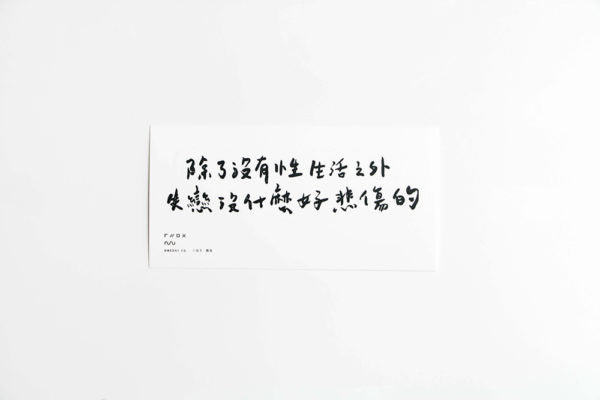 除了沒有性生活之外
失戀沒什麼好悲傷的